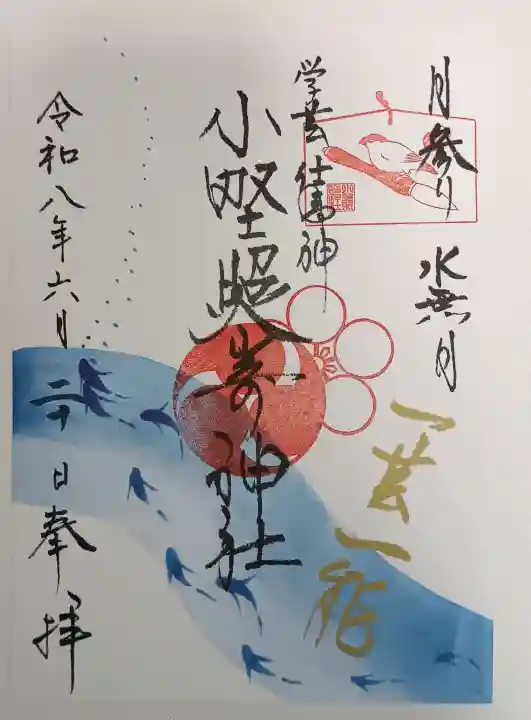 月参り 水無月
学芸仕事神
小野照崎神社
一芸一
令和八年六月二十日奉拝